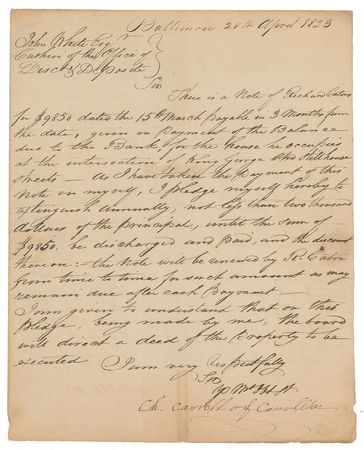 Baltimore 28th April 1823
John White Esqr
Cashier of the Office of
Disct & Deposite
Sir
There is a Note of Richard Caton
for $9850 dated the 15th March Payable in 3 Months from
the date, given in Payment of the Balance
due to the Bank, for the house he occupies
at the intersection of King George &
Streets — As I have taken the Payment of this
Note on myself, I Pledge myself hereby to
extinguish annually, not less than two thousand
dollars of the Principal, until the sum of
$9850. be discharged and Paid, and the discount
thereon: — the Note will be renewed by R. Caton
from time to time for such amount as may
remain due after each Payment
I am given to understand that on that
Pledge, being made by me, the board
will direct a deed of the Property to be
executed I am very respectfully
Sir
Yr Mo Ob St
Ch. Carroll of Carrollton